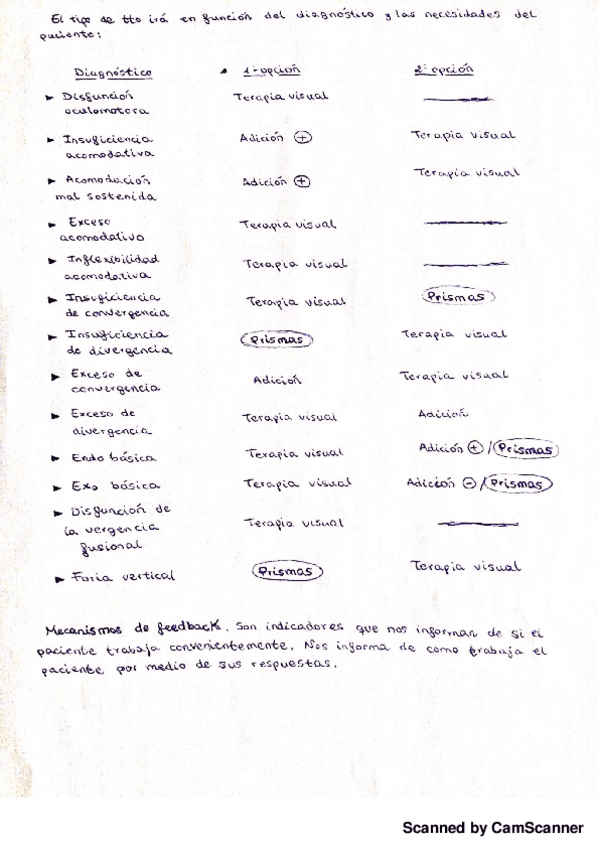 El tipo de tto irá en función del diagnóstico y las necesidades del
paciente:
Diagnóstico 1ª opción 2ª opción
► Disfunción Terapia visual ———
oculomotora
► Insuficiencia Adición ⊕ Terapia visual
acomodativa
► Acomodación Adición ⊕ Terapia visual
mal sostenida
► Exceso Terapia visual ———
acomodativo
► Inflexibilidad Terapia visual ———
acomodativa
► Insuficiencia Terapia visual Prismas
de convergencia
► Insuficiencia Prismas Terapia visual
de divergencia
► Exceso de Adición Terapia visual
convergencia
► Exceso de Terapia visual Adición
divergencia
► Endo básica Terapia visual Adición ⊕ / Prismas
► Exo básica Terapia visual Adición ⊖ / Prismas
► Disfunción de Terapia visual ———
la vergencia
fusional
► Foria vertical Prismas Terapia visual
Mecanismos de feedback. Son indicadores que nos informan de si el
paciente trabaja convenientemente. Nos informa de como trabaja el
paciente, por medio de sus respuestas.
Scanned by CamScanner